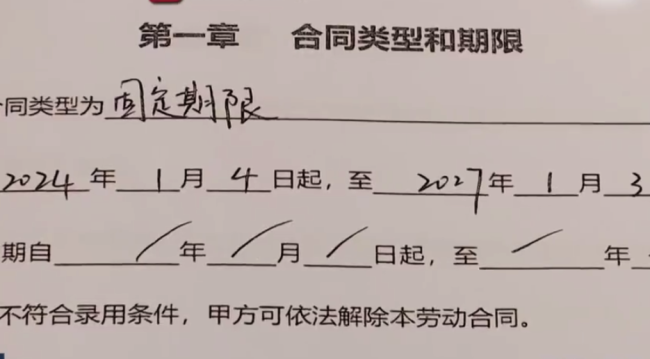 第一章 合同类型和期限
同类型为固定期限
2024年1月4日起，至2027年1月3
期自/年/月/日起，至/年
不符合录用条件，甲方可依法解除本劳动合同。